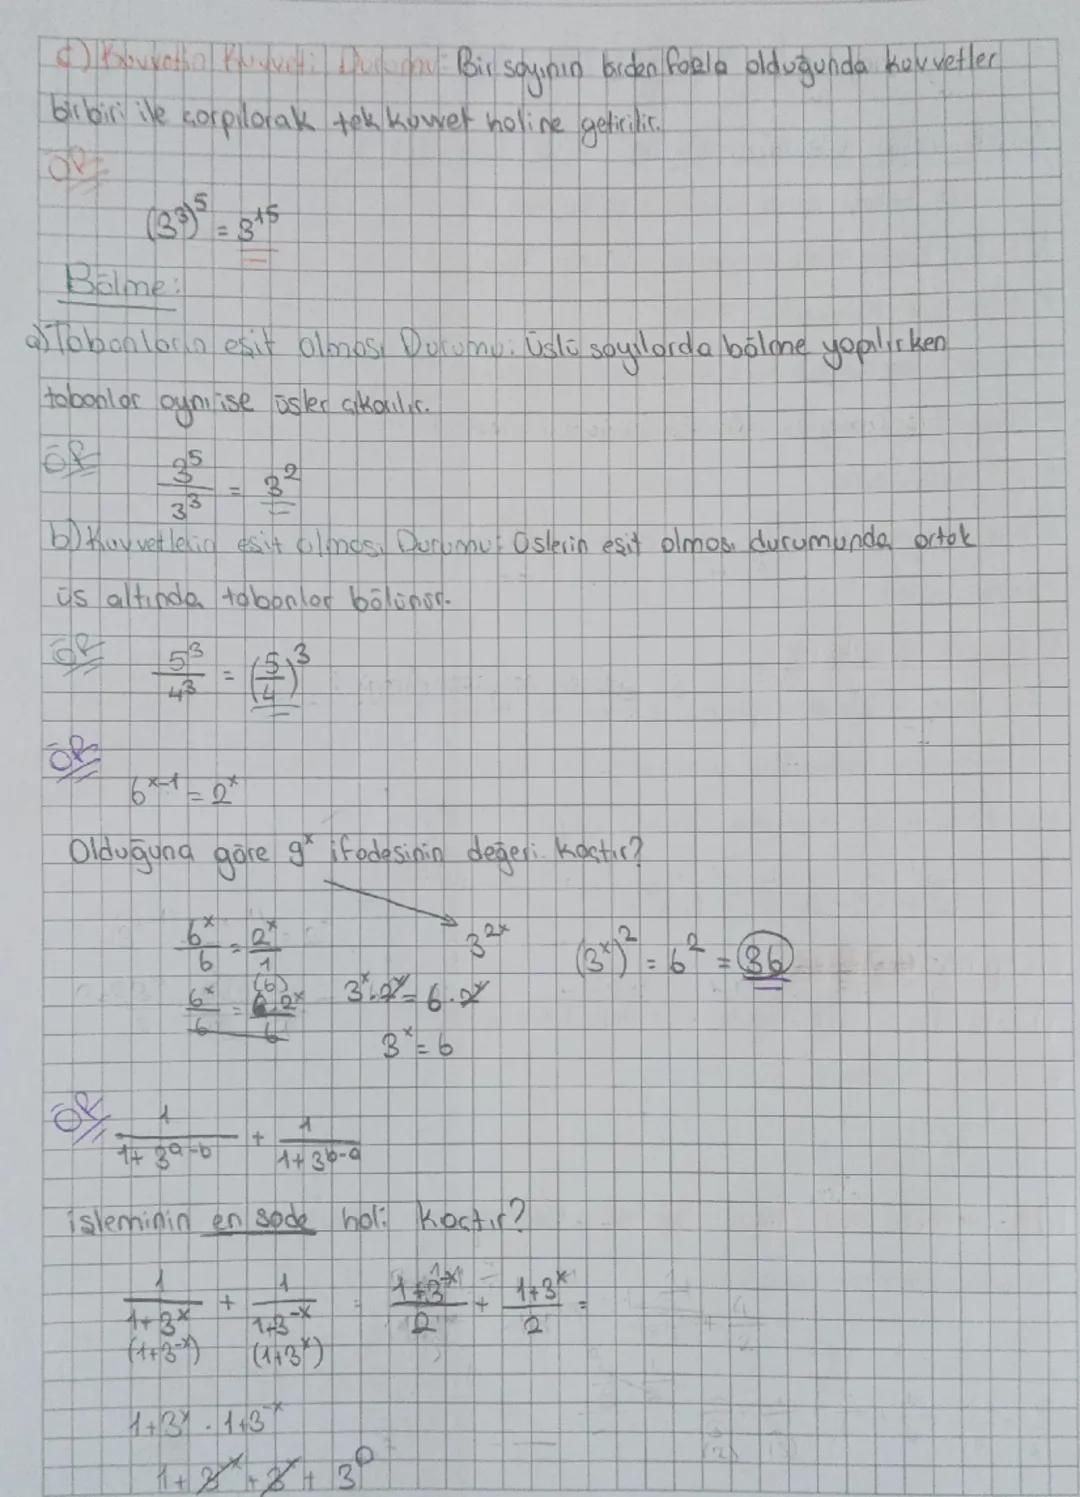 c) Kuvvetin Kuvveti Durumu: Bir sayının birden fazla olduğunda kuvvetler
birbiri ile çarpılarak tek kuvvet haline getirilir.
ÖR
(3³)⁵ = 3¹⁵
Bölme:
a) Tabanların eşit olması Durumu: Üslü sayılarda bölme yapılırken
tabanlar aynı ise üsler çıkarılır.
ÖR 3⁵/3³ = 3²
b) Kuvvetlerin eşit olması Durumu: Üslerin eşit olması durumunda ortak
üs altında tabanlar bölünür.
ÖR 5³/4³ = (5/4)³
ÖR
6ˣ⁻¹ = 2ˣ
Olduğuna göre 9ˣ ifadesinin değeri kaçtır?
6ˣ/6 = 2ˣ/1 3²ˣ (3ˣ)² = 6² = 36
6ˣ/6 = 6.2ˣ/6 (6) 3ˣ.2ˣ = 6.2ˣ
3ˣ = 6
ÖR 1/(1+3ᵃ⁻ᵇ) + 1/(1+3ᵇ⁻ᵃ)
işleminin en sade hali kaçtır?
1/(1+3ˣ) + 1/(1+3⁻ˣ) = (1+3⁻ˣ)/2 + (1+3ˣ)/2 =
(1+3⁻ˣ) (1+3ˣ)
1+3ˣ . 1+3⁻ˣ
1 + 3⁻ˣ + 3ˣ + 3⁰